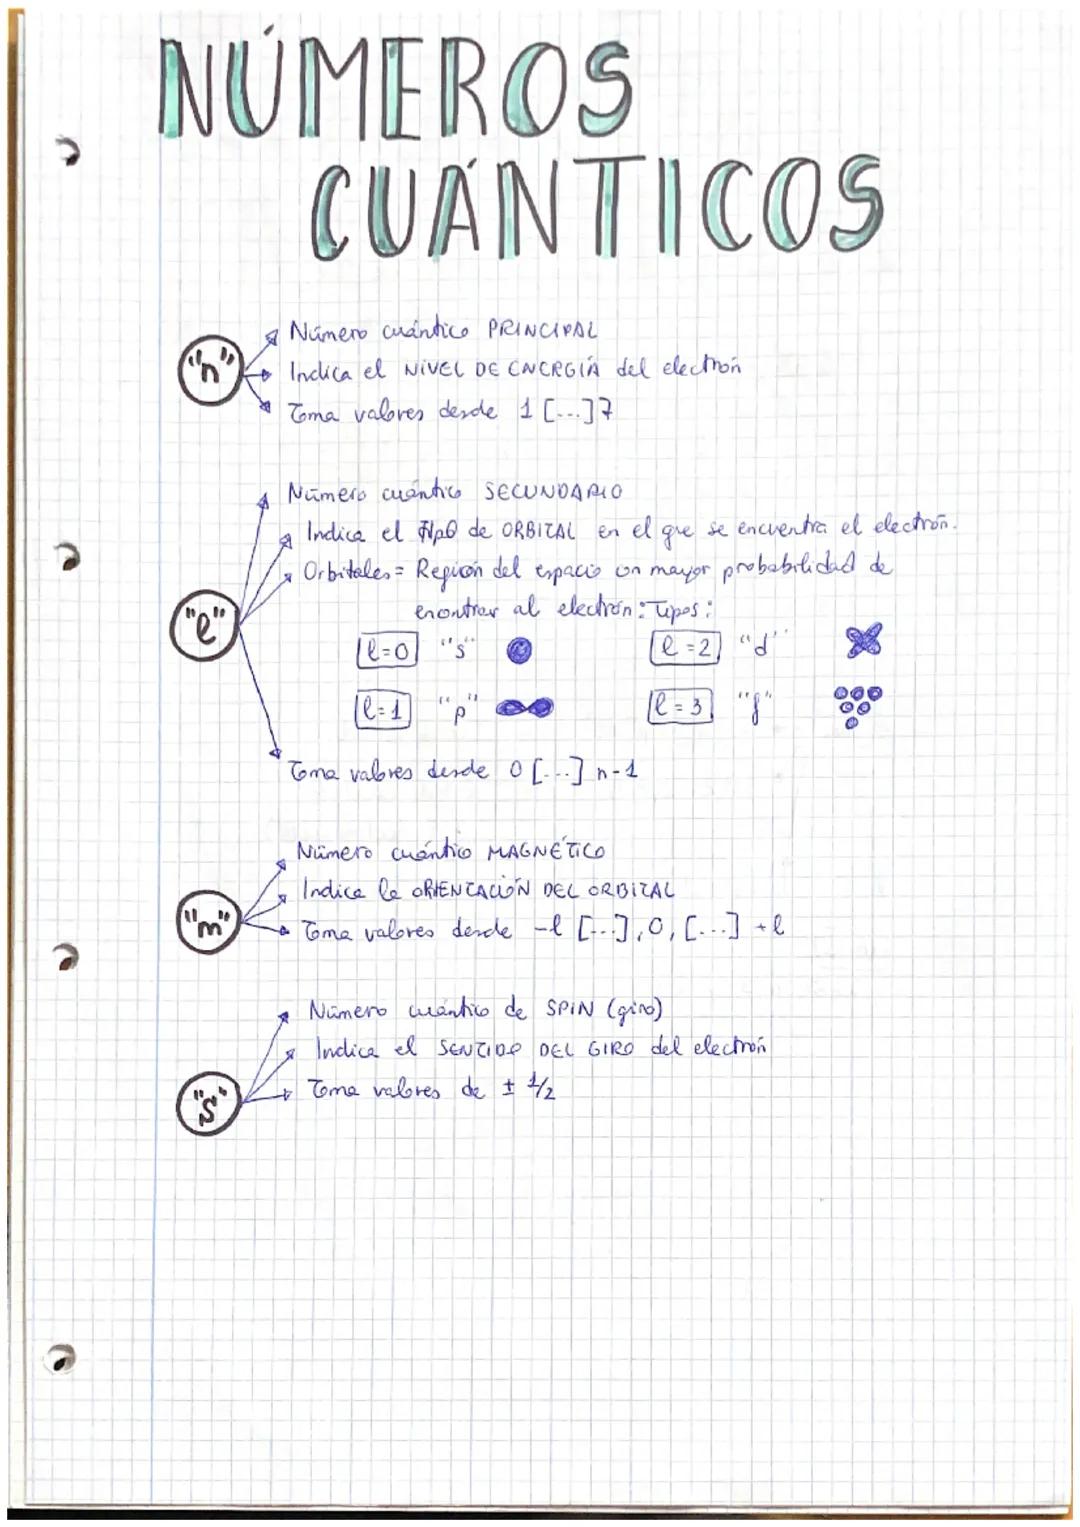 NÚMEROS
CUÁNTICOS
"n"
Número cuántico PRINCIPAL
Indica el NIVEL DE ENERGÍA del electrón
Toma valores desde 1 [...] 7
"l"
Número cuántico SECUNDARIO
Indica el tipo de ORBITAL en el que se encuentra el electrón.
Orbitales = Región del espacio con mayor probabilidad de
encontrar al electrón: Tipos:
l=0 "s" l=2 "d"
l=1 "p" l=3 "f"
Toma valores desde 0 [...] n-1
"m"
Número cuántico MAGNÉTICO
Indica la ORIENTACIÓN DEL ORBITAL
Toma valores desde -l [...], 0, [...] +l
"s"
Número cuántico de SPIN (giro)
Indica el SENTIDO DEL GIRO del electrón
Toma valores de ± 1/2